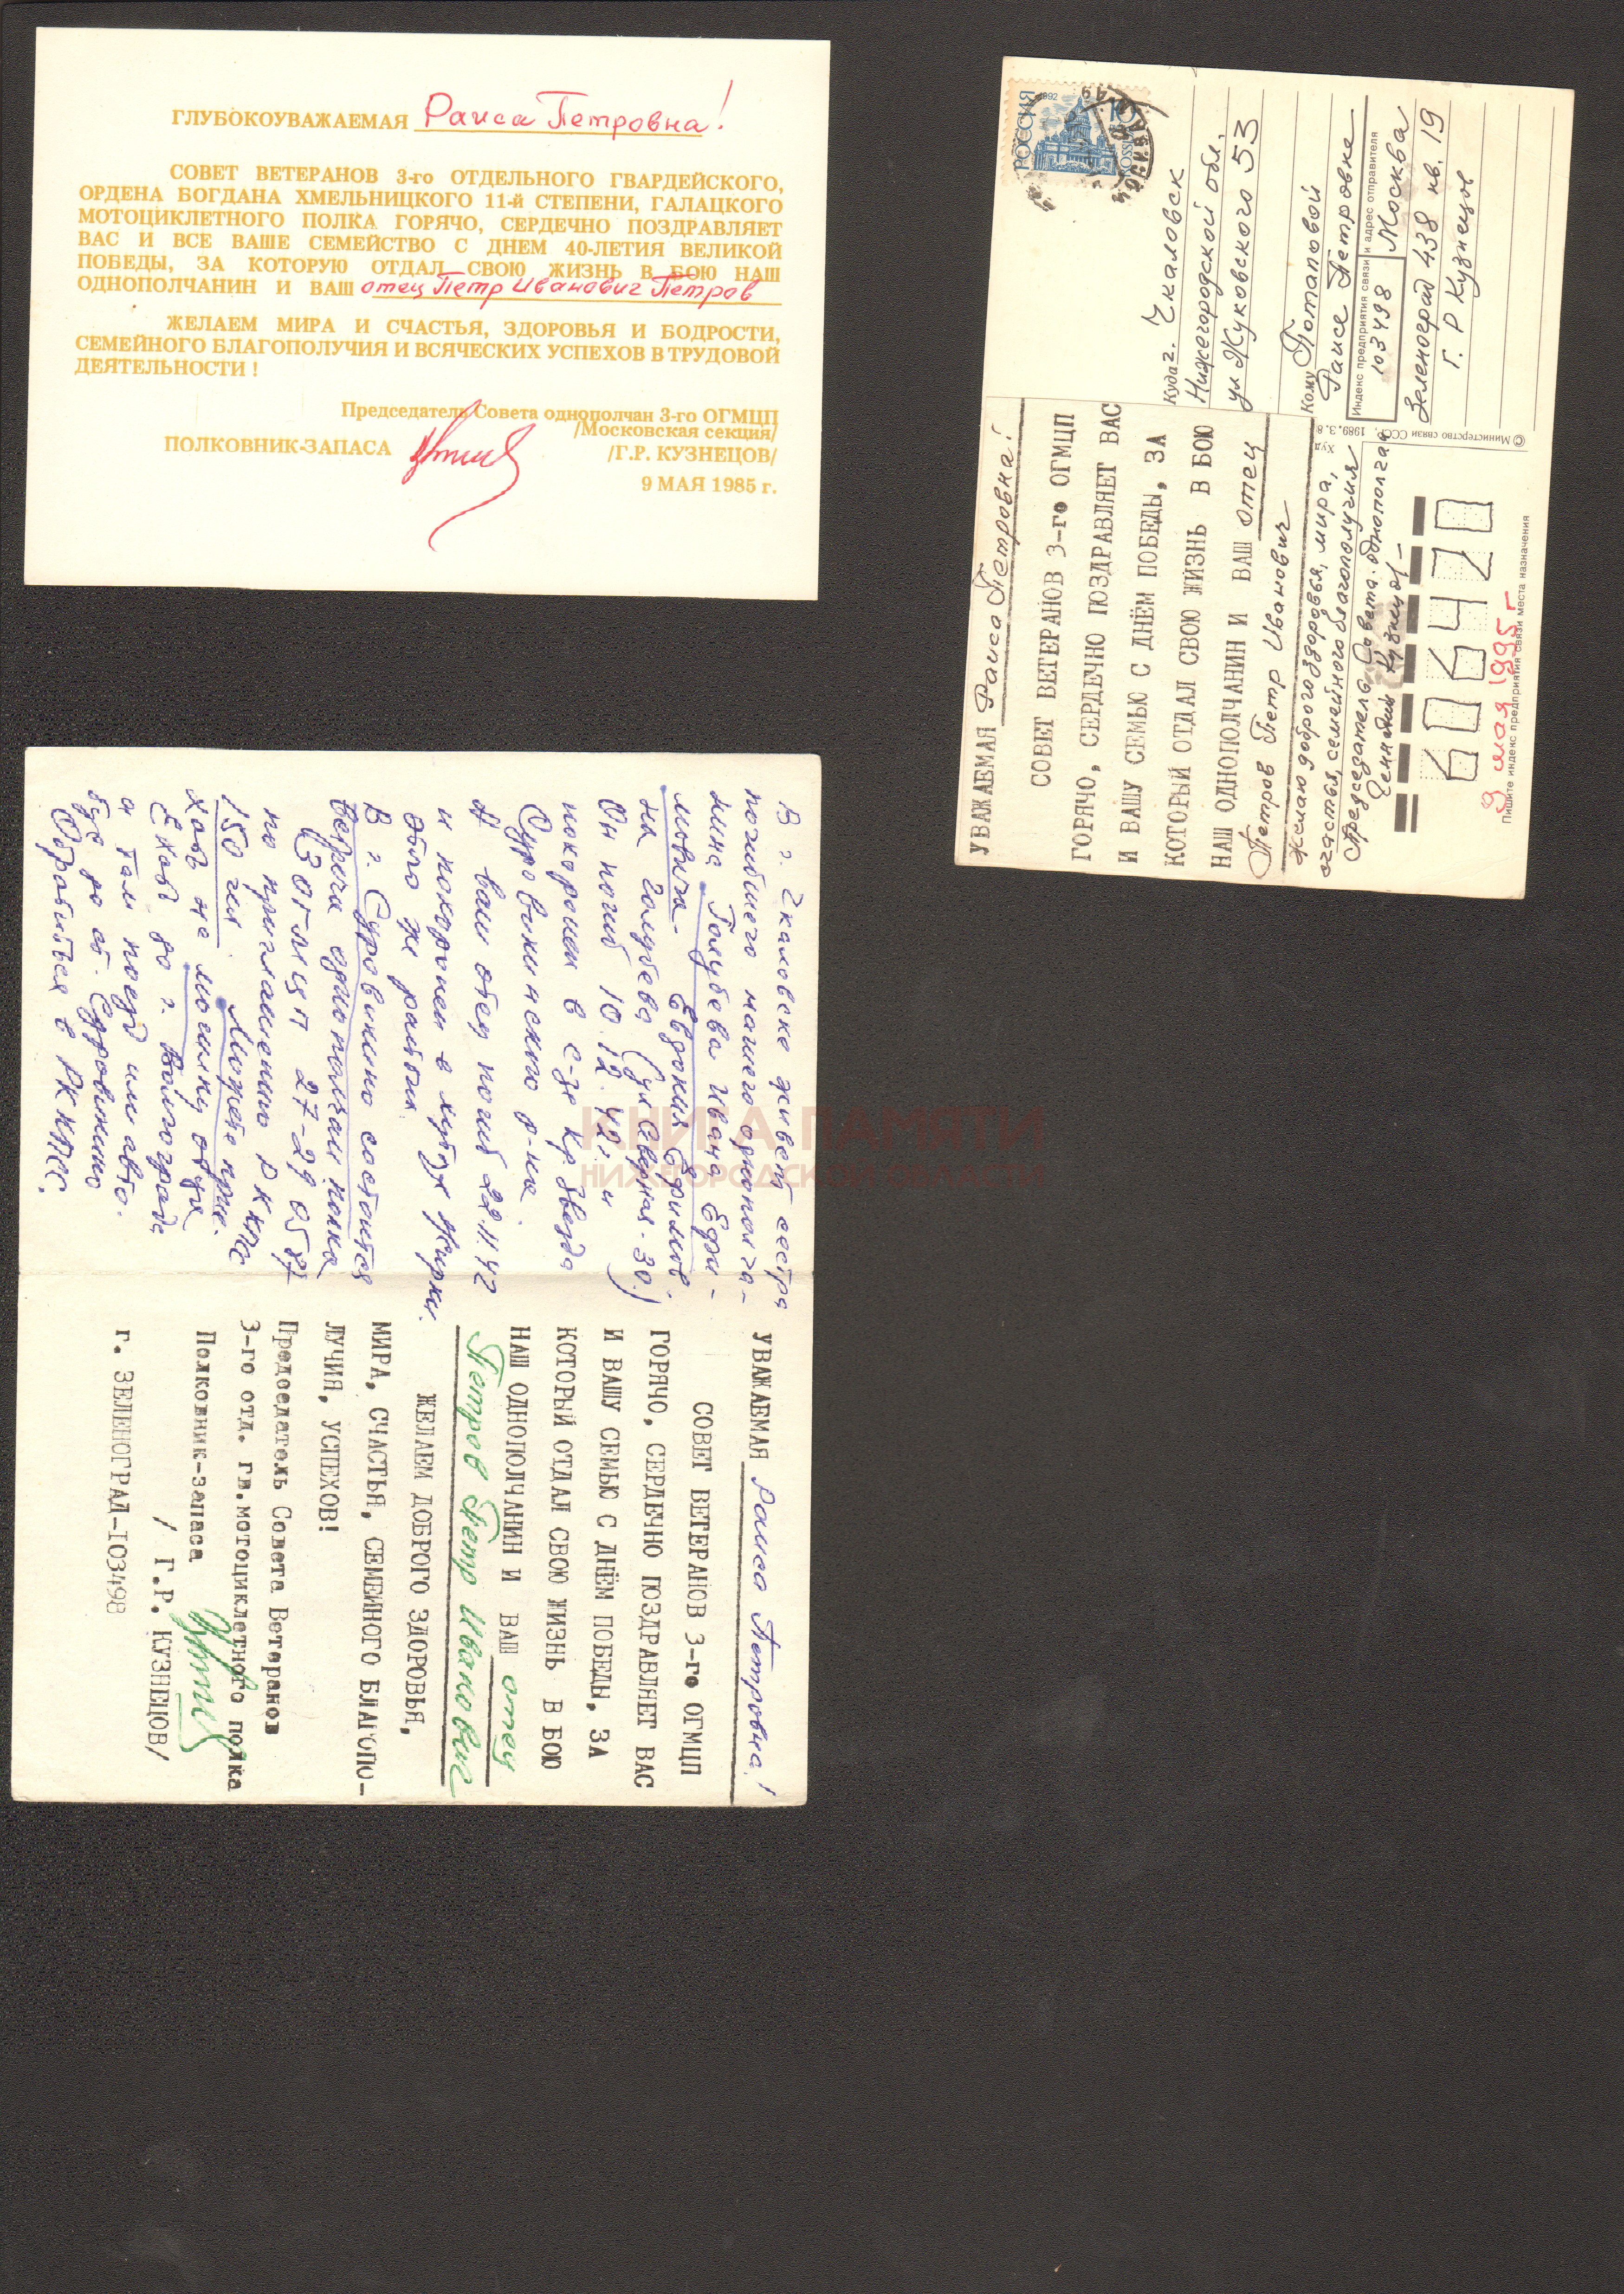 ГЛУБОКОУВАЖАЕМАЯ Раиса Петровна!
СОВЕТ ВЕТЕРАНОВ 3-го ОТДЕЛЬНОГО ГВАРДЕЙСКОГО,
ОРДЕНА БОГДАНА ХМЕЛЬНИЦКОГО 11-й СТЕПЕНИ, ГАЛАЦКОГО
МОТОЦИКЛЕТНОГО ПОЛКА ГОРЯЧО, СЕРДЕЧНО ПОЗДРАВЛЯЕТ
ВАС И ВСЕ ВАШЕ СЕМЕЙСТВО С ДНЕМ 40-ЛЕТИЯ ВЕЛИКОЙ
ПОБЕДЫ, ЗА КОТОРУЮ ОТДАЛ СВОЮ ЖИЗНЬ В БОЮ НАШ
ОДНОПОЛЧАНИН И ВАШ отец Петр Иванович Петров
ЖЕЛАЕМ МИРА И СЧАСТЬЯ, ЗДОРОВЬЯ И БОДРОСТИ,
СЕМЕЙНОГО БЛАГОПОЛУЧИЯ И ВСЯЧЕСКИХ УСПЕХОВ В ТРУДОВОЙ
ДЕЯТЕЛЬНОСТИ !
Председатель Совета однополчан 3-го ОГМЦП
/Московская секция/
ПОЛКОВНИК-ЗАПАСА /Г.Р. КУЗНЕЦОВ/
9 МАЯ 1985 г.
РОССИЯ 1992
ROSSIJA
Куда г. Чкаловск
Нижегородской обл.
ул Жуковского 53
Кому Потаповой
Раисе Петровне
Индекс предприятия связи и адрес отправителя
103498 Москва
Зеленоград 438 кв. 19
Г. Р Кузнецов
© Министерство связи СССР, 1989. 3.8
Худ
УВАЖАЕМАЯ Раиса Петровна!
СОВЕТ ВЕТЕРАНОВ 3-го ОГМЦП
ГОРЯЧО, СЕРДЕЧНО ПОЗДРАВЛЯЕТ ВАС
И ВАШУ СЕМЬЮ С ДНЁМ ПОБЕДЫ, ЗА
КОТОРЫЙ ОТДАЛ СВОЮ ЖИЗНЬ В БОЮ
НАШ ОДНОПОЛЧАНИН И ВАШ отец
Петров Петр Иванович
Желаю доброго здоровья, мира,
счастья, семейного благополучия
Председатель Совета однополчан
Геннадий Кузнецов
606470
9 мая 1995 г
Пишите индекс предприятия связи места назначения
В г. Чкаловске живет сестра
погибшего нашего однополча-
нина Голубева Ивана Ефи-
мовича - Евдокия Ефимов.
на Голубева (ул Северная-30)
Он погиб 10.12.42 г и
похоронен в с-зе Кр Звезда
Суровикинского р-на.
А ваш отец погиб 22 11 42
и похоронен в хуторе Жирки.
Обло же района.
В г. Суровикино состоится
встреча однополчан полка
(3 ОГМЦП 27-29 05 87
по приглашению РК КПСС
150 чел. Может прие-
хать на могилку отца
Ехать до г. Волгограда
а там поезд или авто-
бус до ст. Суровикино
Обратиться в РК КПСС.
КНИГА ПАМЯТИ
НИЖЕГОРОДСКОЙ ОБЛАСТИ
УВАЖАЕМАЯ Раиса Петровна!
СОВЕТ ВЕТЕРАНОВ 3-го ОГМЦП
ГОРЯЧО, СЕРДЕЧНО ПОЗДРАВЛЯЕТ ВАС
И ВАШУ СЕМЬЮ С ДНЁМ ПОБЕДЫ, ЗА
КОТОРЫЙ ОТДАЛ СВОЮ ЖИЗНЬ В БОЮ
НАШ ОДНОПОЛЧАНИН И ВАШ отец
Петров Петр Иванович
ЖЕЛАЕМ ДОБРОГО ЗДОРОВЬЯ,
МИРА, СЧАСТЬЯ, СЕМЕЙНОГО БЛАГОПО-
ЛУЧИЯ, УСПЕХОВ!
Председатель Совета Ветеранов
3-го отд. гв.мотоциклетного полка
Полковник-запаса
/ Г.Р. КУЗНЕЦОВ/
г. ЗЕЛЕНОГРАД-103498